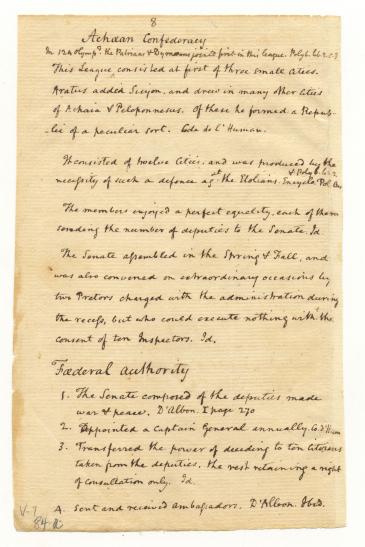 8
Achæan Confederacy
In 124 Olympd. the Patrians & Dymæans joined first in this league. Polyb. lib 2. c. 3
This League consisted at first of three small cities.
Aratus added Sicyon, and drew in many other cities
of Achaia & Peloponnesus. Of these he formed a Repub-
lic of a peculiar sort. Code de l'Human.
It consisted of twelve cities, and was produced by the
& Polyb. lib 2.
necessity of such a defence agst the Etolians. Encyclo. Pol. Œcon
The members enjoyed a perfect equality, each of them
sending the number of deputies to the Senate. Id.
The Senate assembled in the Spring & Fall, and
was also convened on extraordinary occasions by
two Pretors charged with the administration during
the recess, but who could execute nothing with the
consent of ten Inspectors. Id.
Fœderal authority
1. The Senate composed of the deputies made
war & peace. D'Albon. I page 270
2. Appointed a Captain General annually. Co. d'Hum
3. Transferred the power of deciding to ten Citizens
taken from the deputies, the rest retaining a right
of consultation only. Id.
4. Sent and received ambassadors. D'Albon. Ibid.
V-7
84 a